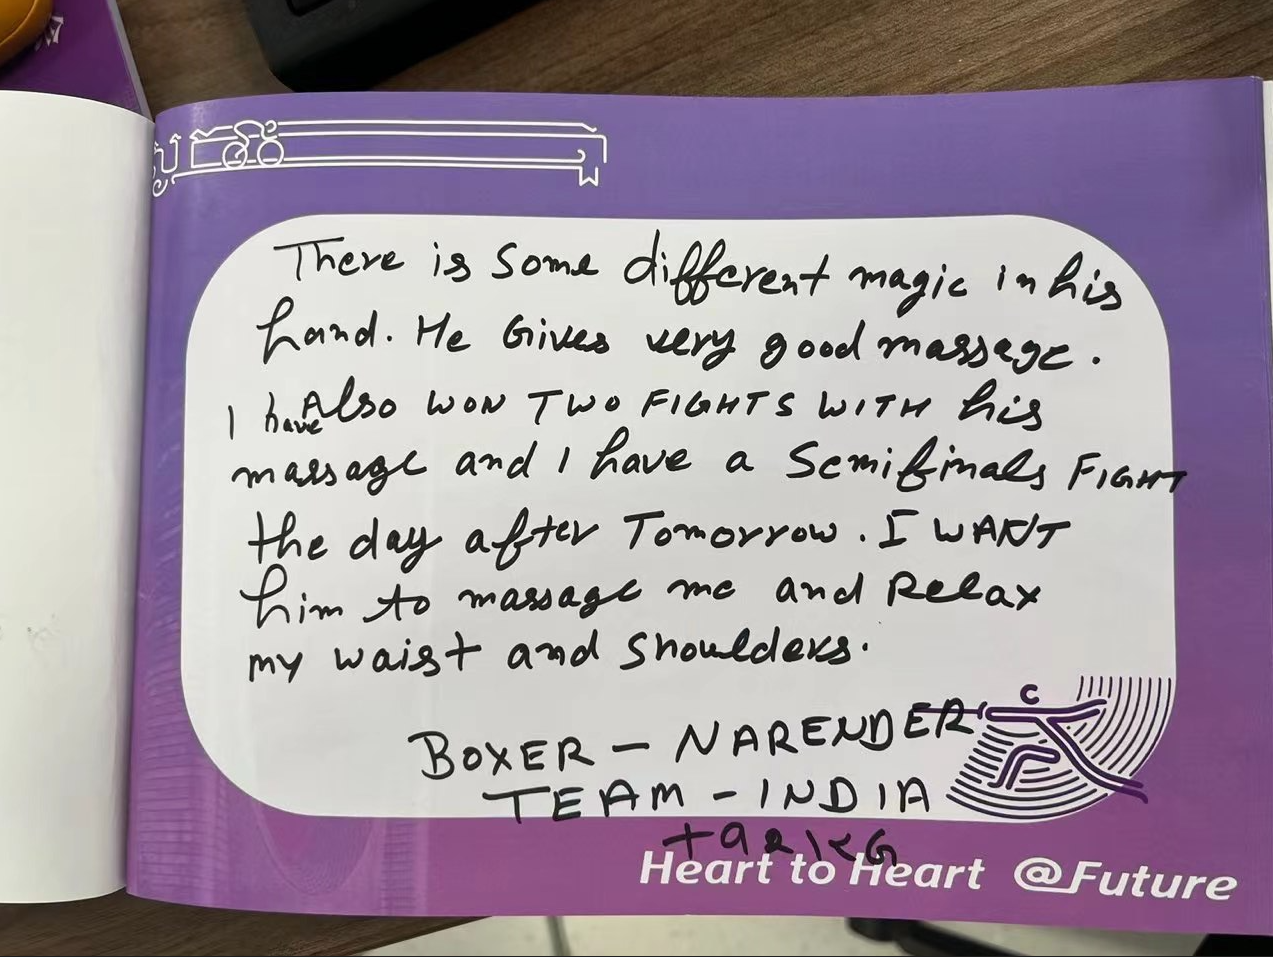 There is Some different magic in his
hand. He Gives very good massage.
I have Also WON TWO FIGHTS WITH his
massage and I have a Semifinals FIGHT
the day after Tomorrow. I WANT
him to massage me and Relax
my waist and Shoulders.
BOXER - NARENDER
TEAM - INDIA
+92KG
Heart to Heart @Future